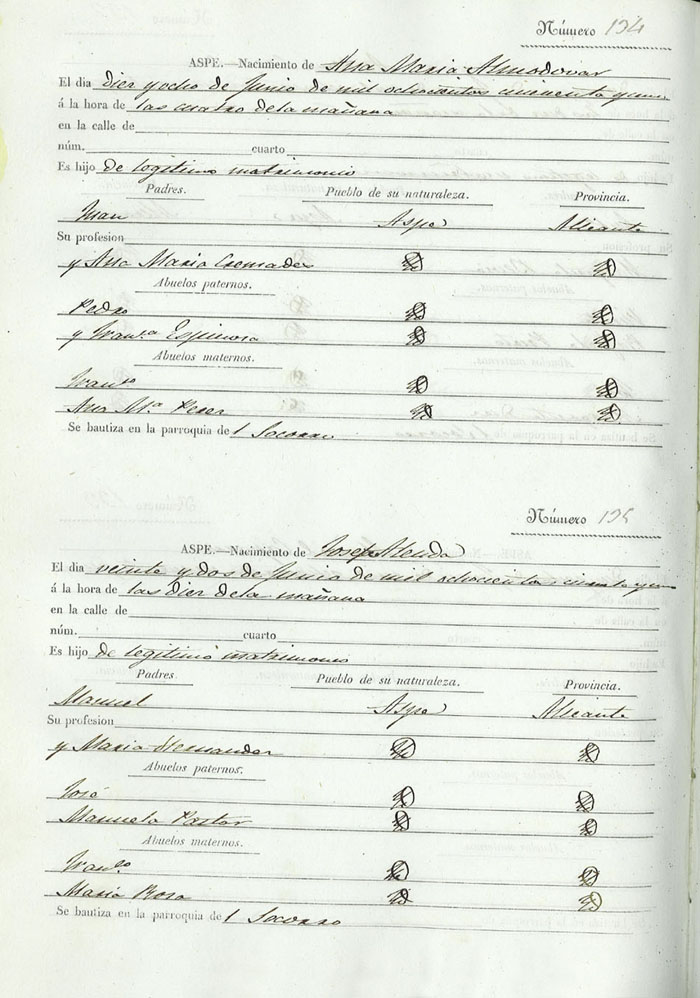 Número 134
ASPE.—Nacimiento de Ana Maria Almodovar
El dia diez y ocho de Junio de mil ochocientos cincuenta y uno
á la hora de las cuatro de la mañana
en la calle de
núm. cuarto
Es hijo de legitimo matrimonio
Padres. Pueblo de su naturaleza. Provincia.
Juan Aspe Alicante
Su profesion
y Ana Maria Cremades
Abuelos paternos.
Pedro
y Fran.ca Espinosa
Abuelos maternos.
Fran.co
Ana M.a Perez
Se bautiza en la parroquia del Socorro
Número 135
ASPE.—Nacimiento de Josefa Alenda
El dia veinte y dos de Junio de mil ochocientos cincuenta y uno
á la hora de las diez de la mañana
en la calle de
núm. cuarto
Es hijo de legitimo matrimonio
Padres. Pueblo de su naturaleza. Provincia.
Manuel Aspe Alicante
Su profesion
y Maria Hernandez
Abuelos paternos.
José
Manuela Pastor
Abuelos maternos.
Fran.co
Maria Rosa
Se bautiza en la parroquia del Socorro